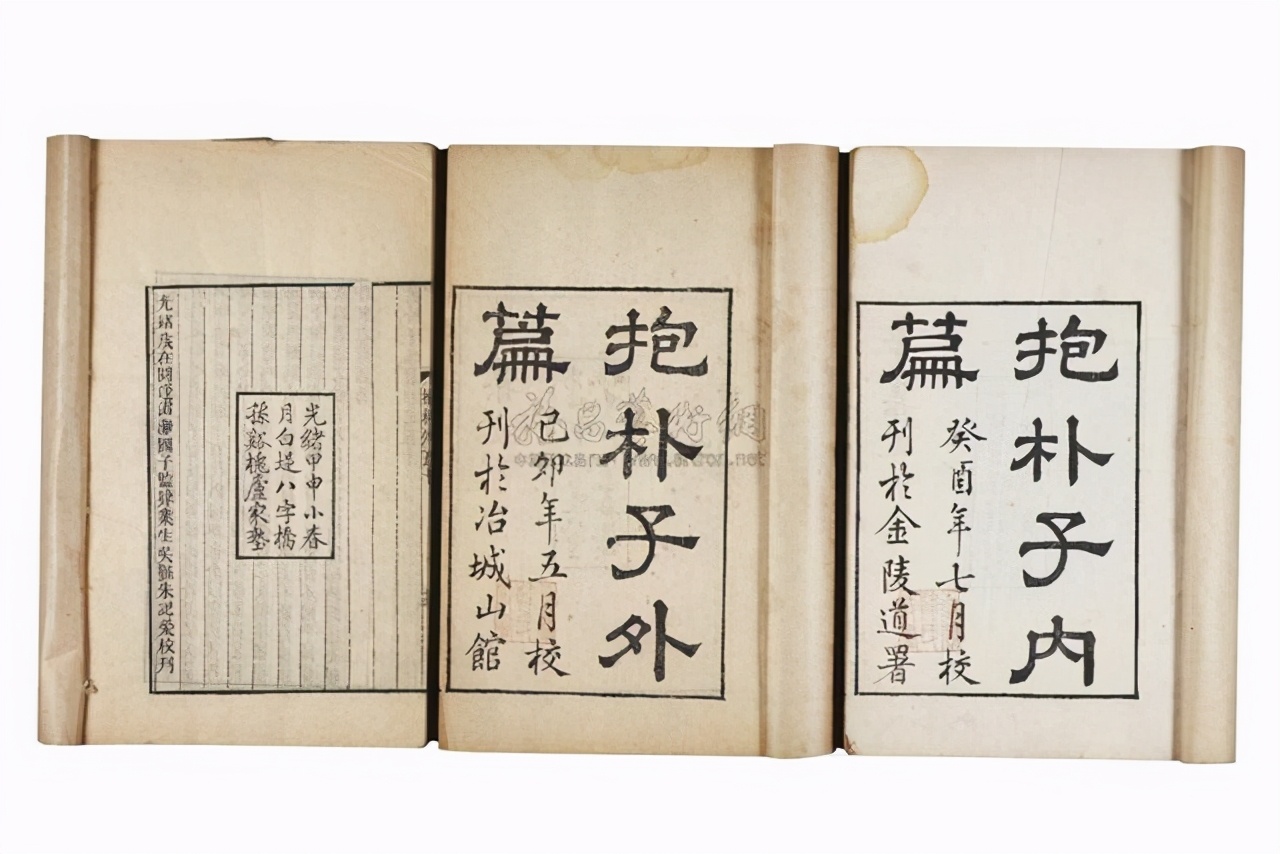 抱朴子内
篇
癸酉年七月校
刊於金陵道署
抱朴子外
篇
己卯年五月校
刊於冶城山館
雅昌藝術網
光緒甲申小春
月白堤八字橋
孫谿槐廬家塾
光緒歲在閼逢涒灘國子監肄業生吳縣朱記榮校刊